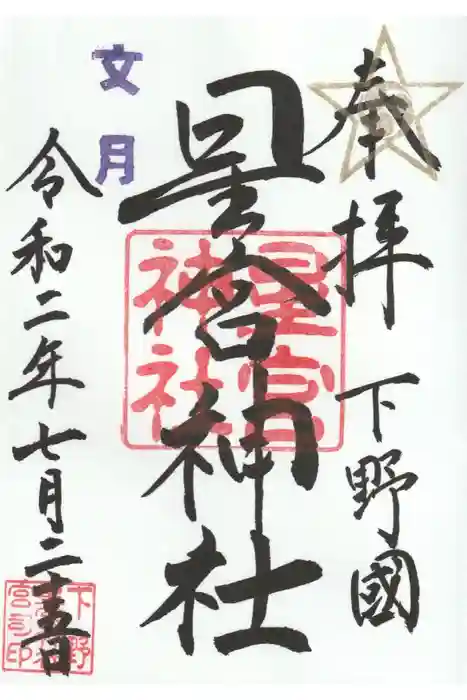 奉拝 下野國
星宮神社
星宮
神社
文月
令和二年七月二十五日
下野
宮司印